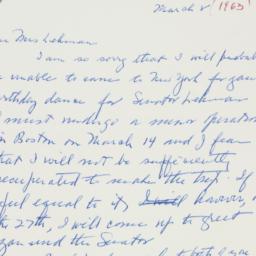 March 2 (1963
Mrs Lehman
I am so sorry that I will probab
unable to come to New York for your
birthday dance for Senator Lehman
I must undergo a minor operation
in Boston on March 14 and I fear
that I will not be sufficiently
recuperated to make the trip. If
feel equal to it, I will however, on
the 27th, I will come up to greet
you and the Senator